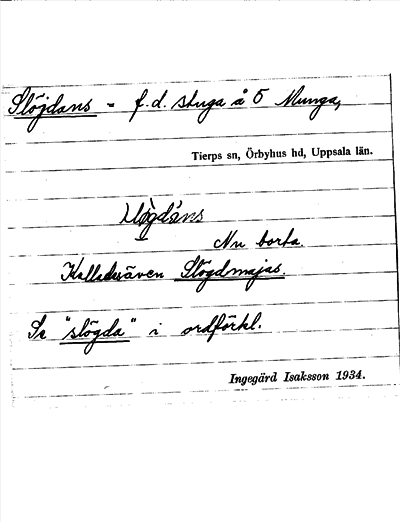 Slöjdans - f.d. stuga å 5 Munga,
Tierps sn, Örbyhus hd, Uppsala län.
slø̀gdáns
Nu borta.
Kallades även Slögdmajas.
Se "slögda" i ordförkl.
Ingegärd Isaksson 1934.